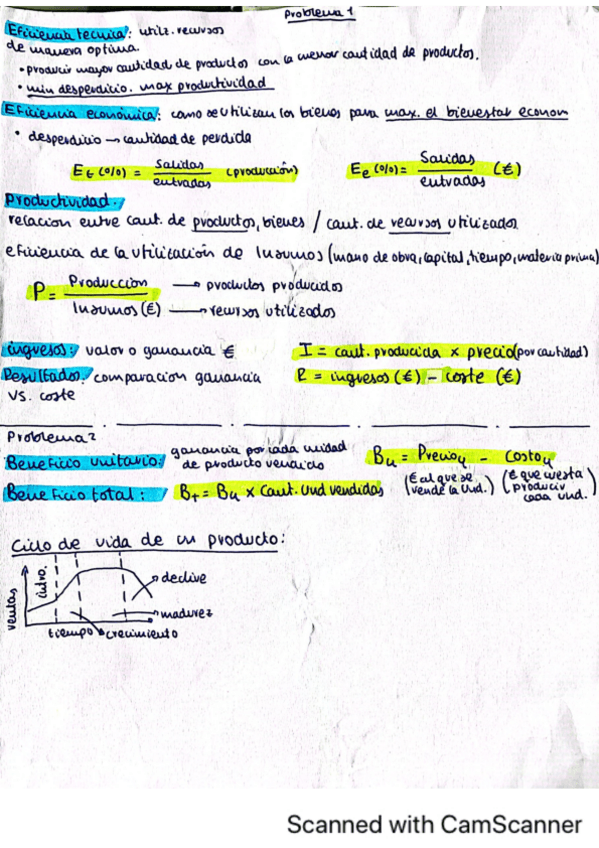 Problema 1
Eficiencia tecnica: utiliz. recursos
de manera optima.
• producir mayor cantidad de productos con la menor cantidad de productos.
• min desperdicio. max productividad
Eficiencia económica: como se utilizan los bienes para max. el bienestar econom
• desperdicio → cantidad de perdida
Et (%) = Salidas / entradas (producción)
Ee (%) = Salidas / entradas (€)
Productividad:
relacion entre cant. de productos, bienes / cant. de recursos utilizados
eficiencia de la utilización de Insumos (mano de obra, capital, tiempo, materia prima)
P = Producción / Insumos (€)
→ productos producidos
→ recursos utilizados
ingresos: valor o ganancia €
I = cant. producida x precio (por cantidad)
Resultados: comparacion ganancia
vs. coste
R = ingresos (€) - coste (€)
Problema 2
Beneficio unitario: ganancia por cada unidad
de producto vendido
Bu = Preciou - Costou
(€ al que se
vende la Und.)
(€ que cuesta
producir
cada und.)
Beneficio total: Bt = Bu x Cant. Und vendidas
Ciclo de vida de un producto:
ventas
intro.
declive
madurez
tiempo
crecimiento
Scanned with CamScanner